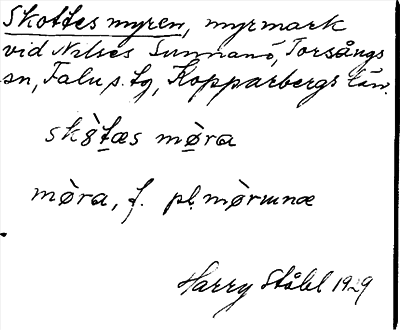 Skottes myren, myrmark
vid Nilses Sunnanö, Torsångs
sn, Falu s. tg, Kopparbergs län.
skò̀tæs mø̀ra
mø̀ra, f. pl. mø̀runæ
Harry Ståhl 1929